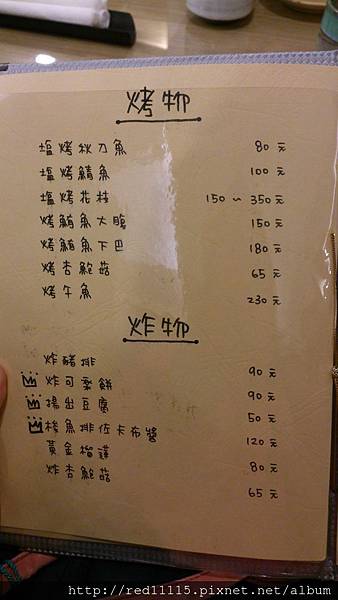 烤物
塩烤秋刀魚 80元
塩烤鯖魚 100元
塩烤花枝 150~350元
烤鮪魚大腹 150元
烤鮪魚下巴 180元
烤杏鮑菇 65元
烤午魚 230元
炸物
炸豬排 90元
炸可樂餅 90元
揚出豆腐 50元
梭魚排佐卡布醬 120元
黃金榴蓮 80元
炸杏鮑菇 65元
http://red11115.pixnet.net/album